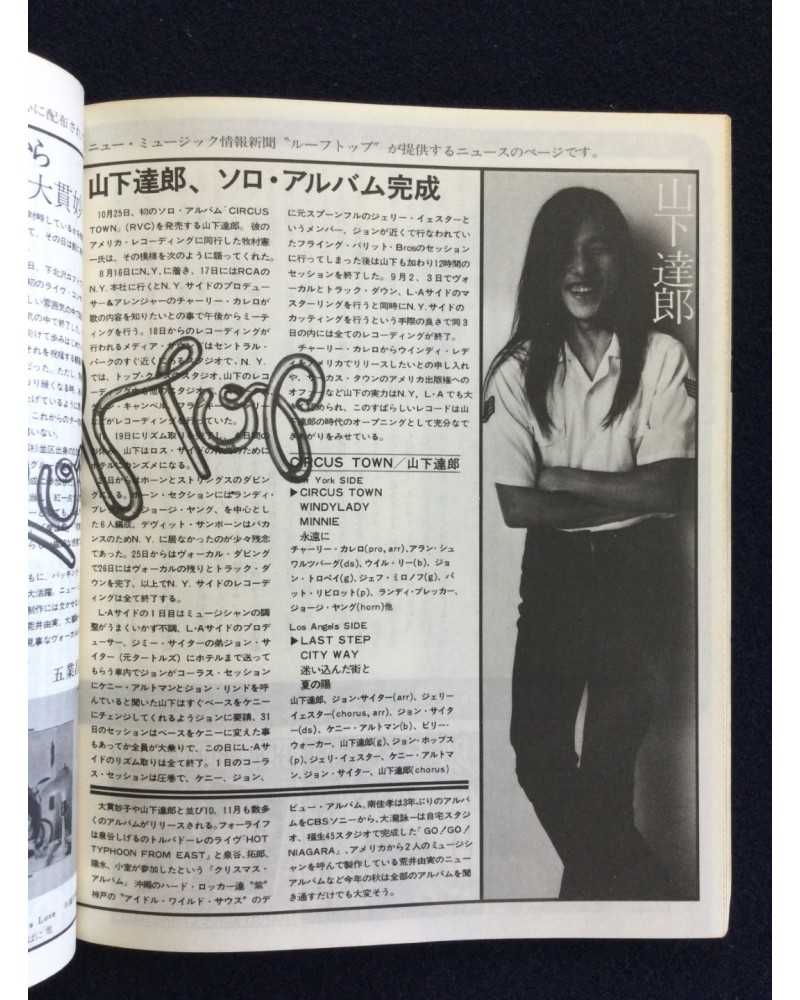 いに配布され
ニュー・ミュージック情報新聞〝ルーフトップ〟が提供するニュースのページです。
山下達郎、ソロ・アルバム完成
10月25日、初のソロ・アルバム「CIRCUS
TOWN」(RVC)を発売する山下達郎。彼の
アメリカ・レコーディングに同行した牧村憲
一氏は、その模様を次のように語ってくれた。
8月16日にN.Y.に着き、17日にはRCAの
N.Y.本社に行くとN.Y.サイドのプロデュー
サー&アレンジャーのチャーリー・カレロが
歌の内容を知りたいとの事で午後からミーテ
ィングを行う。18日からのレコーディングが
行われるメディア・
はセントラル・
パークのすぐ近くに
スタジオで、N.Y.
では、トップ・ク
スタジオ、山下のレコ
ーディング
スタジオ
キャンベル、フラ
がレコーディングを行っていた。
19日にリズム取り
日間の
山下はロス・サイドの
ために
ホテルにカンズメになる。
日からはホーンとストリングスのダビン
グに
ホーン・セクションにはランディ・
ブレ
ジョージ・ヤング、を中心とし
た6人編成。デヴィット・サンボーンはバカ
ンスのためN.Y.に居なかったのが少々残念
であった。25日からはヴォーカル・ダビング
で26日にはヴォーカルの残りとトラック・ダ
ウンを完了、以上でN.Y.サイドのレコーデ
ィングは全て終了する。
L・Aサイドの1日目はミュージシャンの調
整がうまくいかず不調、L・Aサイドのプロデ
ューサー、ジミー・サイターの弟ジョン・サ
イター(元タートルズ)にホテルまで送って
もらう車内でジョンがコーラス・セッション
にケニー・アルトマンとジョン・リンドを呼
んでいると聞いた山下はすぐベースをケニー
にチェンジしてくれるようジョンに要請、31
日のセッションはベースをケニーに変えた事
もあってか全員が大乗りで、この日にL・Aサ
イドのリズム取りは全て終了。1日のコーラ
ス・セッションは圧巻で、ケニー、ジョン、
に元スプーンフルのジェリー・イェスターと
いうメンバー、ジョンが近くで行なわれてい
たフライング・バリット・Brosのセッション
に行ってしまった後は山下も加わり12時間の
セッションを終了した。9月2、3日でヴォ
ーカルとトラック・ダウン、L・Aサイドのマ
スターリングを行うと同時にN.Y.サイドの
カッティングを行うという手際の良さで同3
日の内には全てのレコーディングが終了。
チャーリー・カレロからウインディ・レデ
ィをアメリカでリリースしたいとの申し入れ
や、サーカス・タウンのアメリカ出版権への
オファーなど山下の実力はN.Y、L・Aでも大
いに認められ、このすばらしいレコードは山
下達郎の時代のオープニングとして充分なで
きあがりをみせている。
CIRCUS TOWN/山下達郎
York SIDE
▶CIRCUS TOWN
WINDYLADY
MINNIE
永遠に
チャーリー・カレロ(pro,arr)、アラン・シュ
ワルツバーグ(ds)、ウイル・リー(b)、ジョ
ン・トロペイ(g)、ジェフ・ミロノフ(g)、パ
ット・リビロット(p)、ランディ・ブレッカー、
ジョージ・ヤング(horn)他
Los Angels SIDE
▶LAST STEP
CITY WAY
迷い込んだ街と
夏の陽
山下達郎、ジョン・サイター(arr)、ジェリー
イェスター(chorus,arr)、ジョン・サイタ
ー(ds)、ケニー・アルトマン(b)、ビリー・
ウォーカー、山下達郎(g)、ジョン・ホッブス
(p)、ジェリ・イェスター、ケニー・アルトマ
ン、ジョン・サイター、山下達郎(chorus)
山下達郎
大貫妙子や山下達郎と並び10、11月も数多
くのアルバムがリリースされる。フォーライフ
は泉谷しげるのトルバドーレのライヴ「HOT
TYPHOON FROM EAST」と泉谷、拓郎、
陽水、小室が参加したという『クリスマス・
アルバム』沖縄のハード・ロッカー達〝紫〟
神戸の〝アイドル・ワイルド・サウス〟のデ
ビュー・アルバム、南佳孝は3年ぶりのアルバ
ムをCBSソニーから、大瀧詠一は自宅スタジ
オ、福生45スタジオで完成した「GO!GO!
NIAGARA」、アメリカから2人のミュージシ
ャンを呼んで製作している荒井由実のニュー
アルバムなど今年の秋は全部のアルバムを聞
き通すだけでも大変そう。